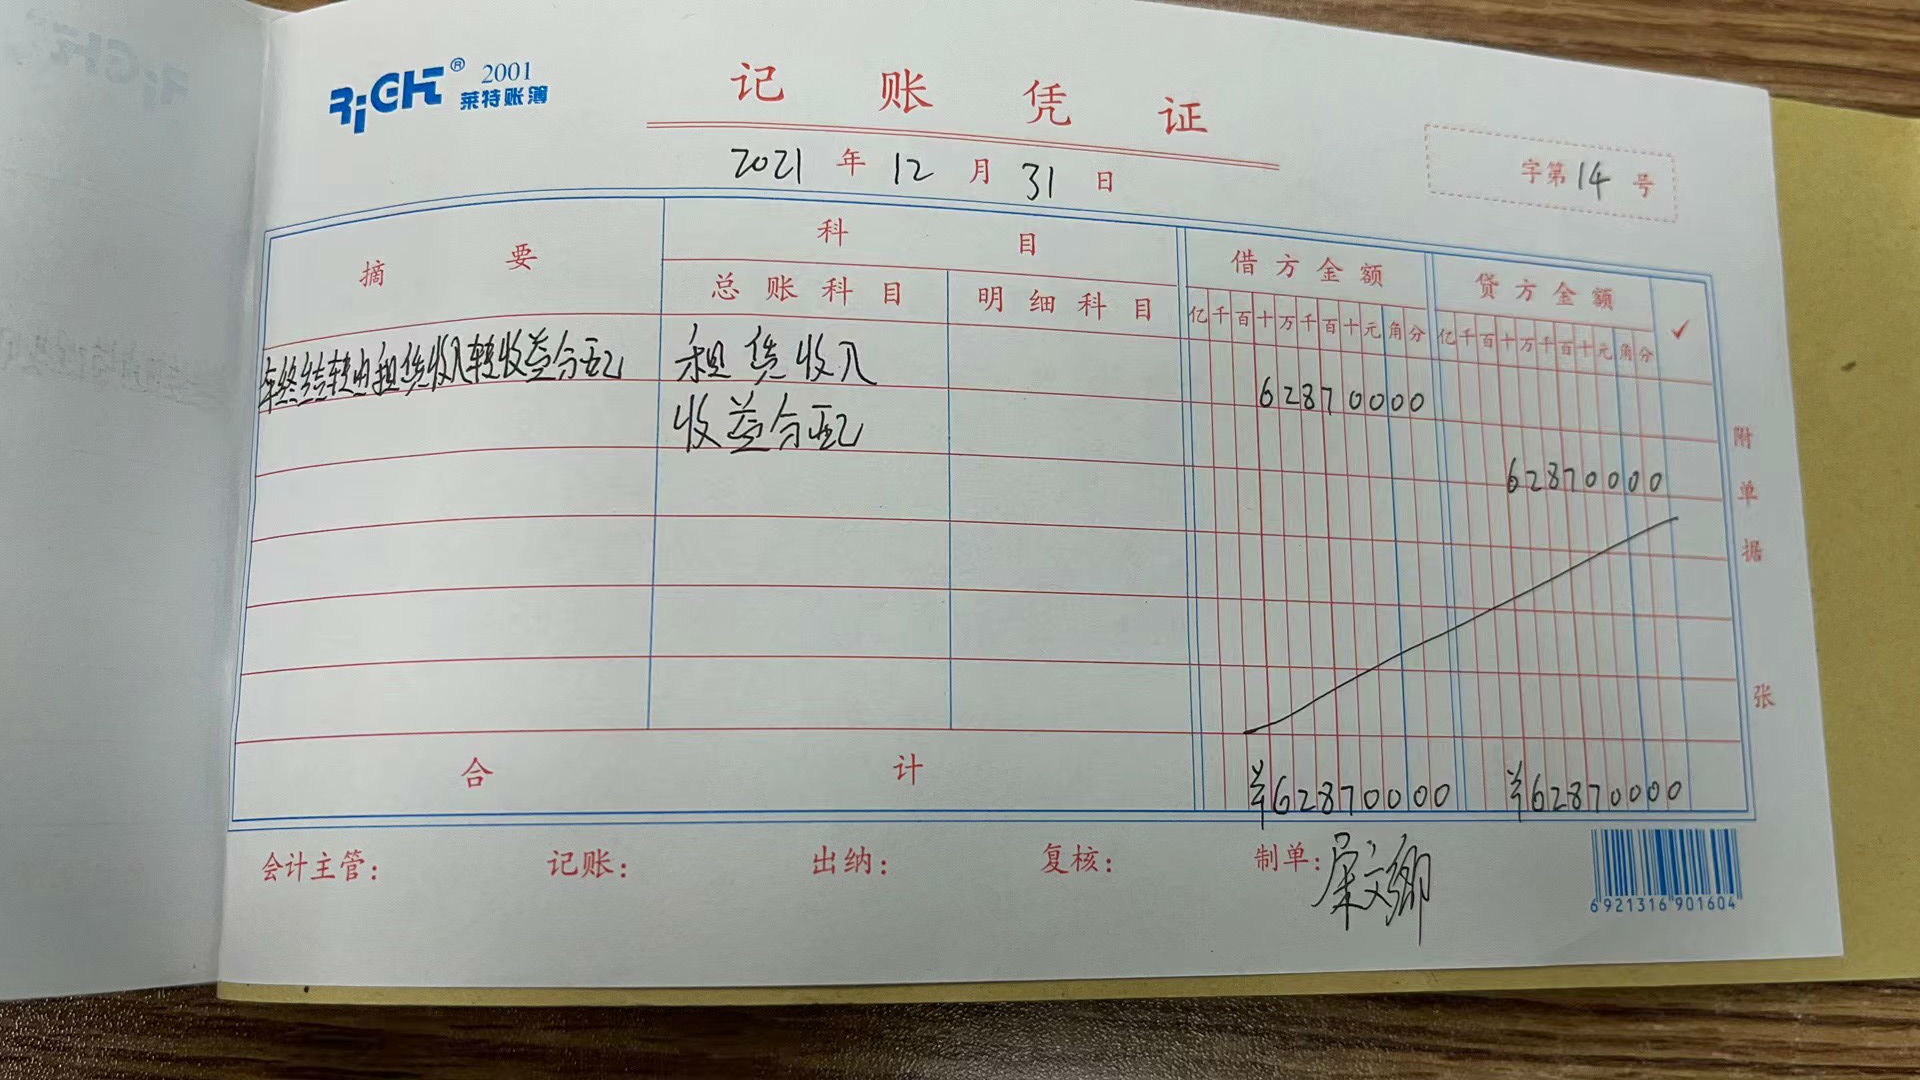 RiGHT® 2001
莱特账簿
记账凭证
2021年12月31日
字第14号
摘要
科目
借方金额
贷方金额
✓
总账科目
明细科目
亿千百十万千百十元角分
亿千百十万千百十元角分
年终结转由租赁收入转收益分配
租赁收入
62870000
收益分配
62870000
附单据 张
合计
¥62870000
¥62870000
会计主管:
记账:
出纳:
复核:
制单:
6921316901604